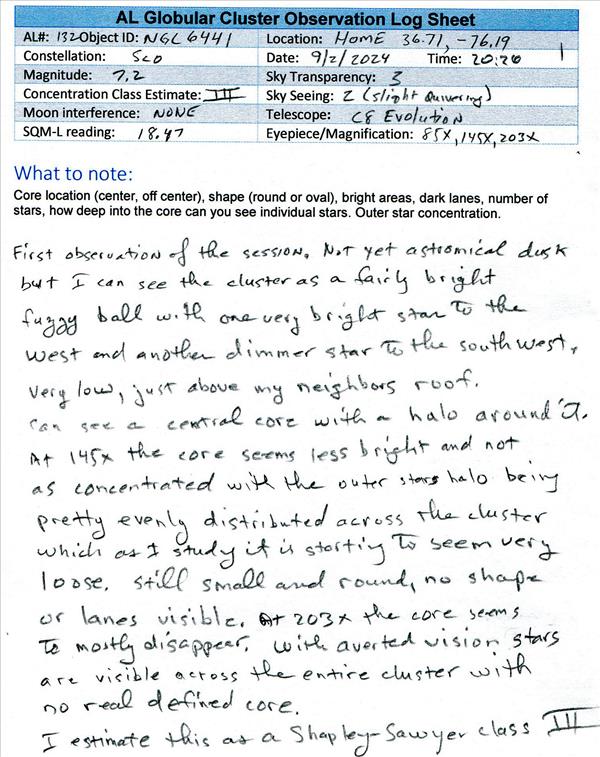 AL Globular Cluster Observation Log Sheet
AL#: 132 Object ID: NGC 6441 Location: HOME 36.71, -76.19
Constellation: Sco Date: 9/2/2024 Time: 20:20
Magnitude: 7.2 Sky Transparency: 3
Concentration Class Estimate: III Sky Seeing: 2 (slight Quivering)
Moon interference: NONE Telescope: C8 Evolution
SQM-L reading: 18.47 Eyepiece/Magnification: 85X, 145X, 203X
What to note:
Core location (center, off center), shape (round or oval), bright areas, dark lanes, number of
stars, how deep into the core can you see individual stars. Outer star concentration.
First observation of the session. Not yet astromical dusk
but I can see the cluster as a fairly bright
fuzzy ball with one very bright star to the
west and another dimmer star to the southwest,
very low, just above my neighbors roof.
Can see a central core with a halo around it.
At 145x the core seems less bright and not
as concentrated with the outer stars halo being
pretty evenly distributed across the cluster
which as I study it is starting to seem very
loose. still small and round, no shape
or lanes visible. At 203x the core seems
to mostly disappear. With averted vision stars
are visible across the entire cluster with
no real defined core.
I estimate this as a Shapley-Sawyer class III